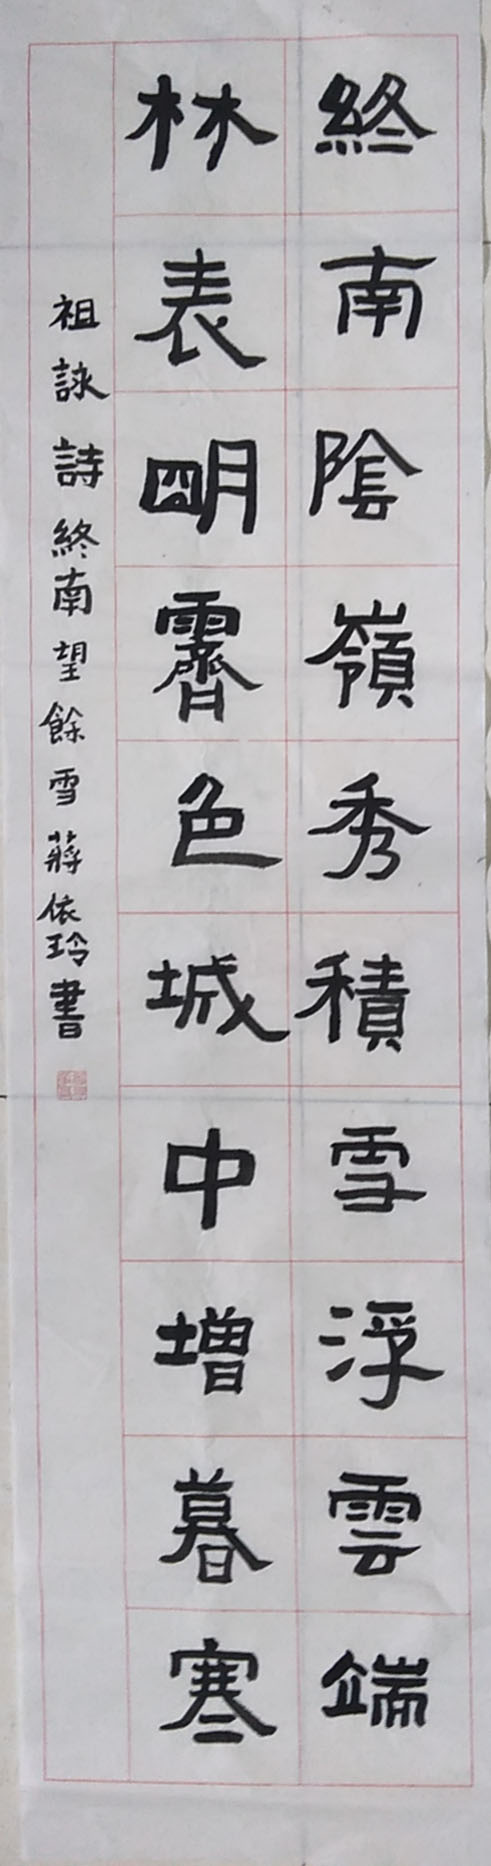 終南陰嶺秀積雪浮雲端
林表明霽色城中增暮寒
祖詠詩終南望餘雪蔣依玲書